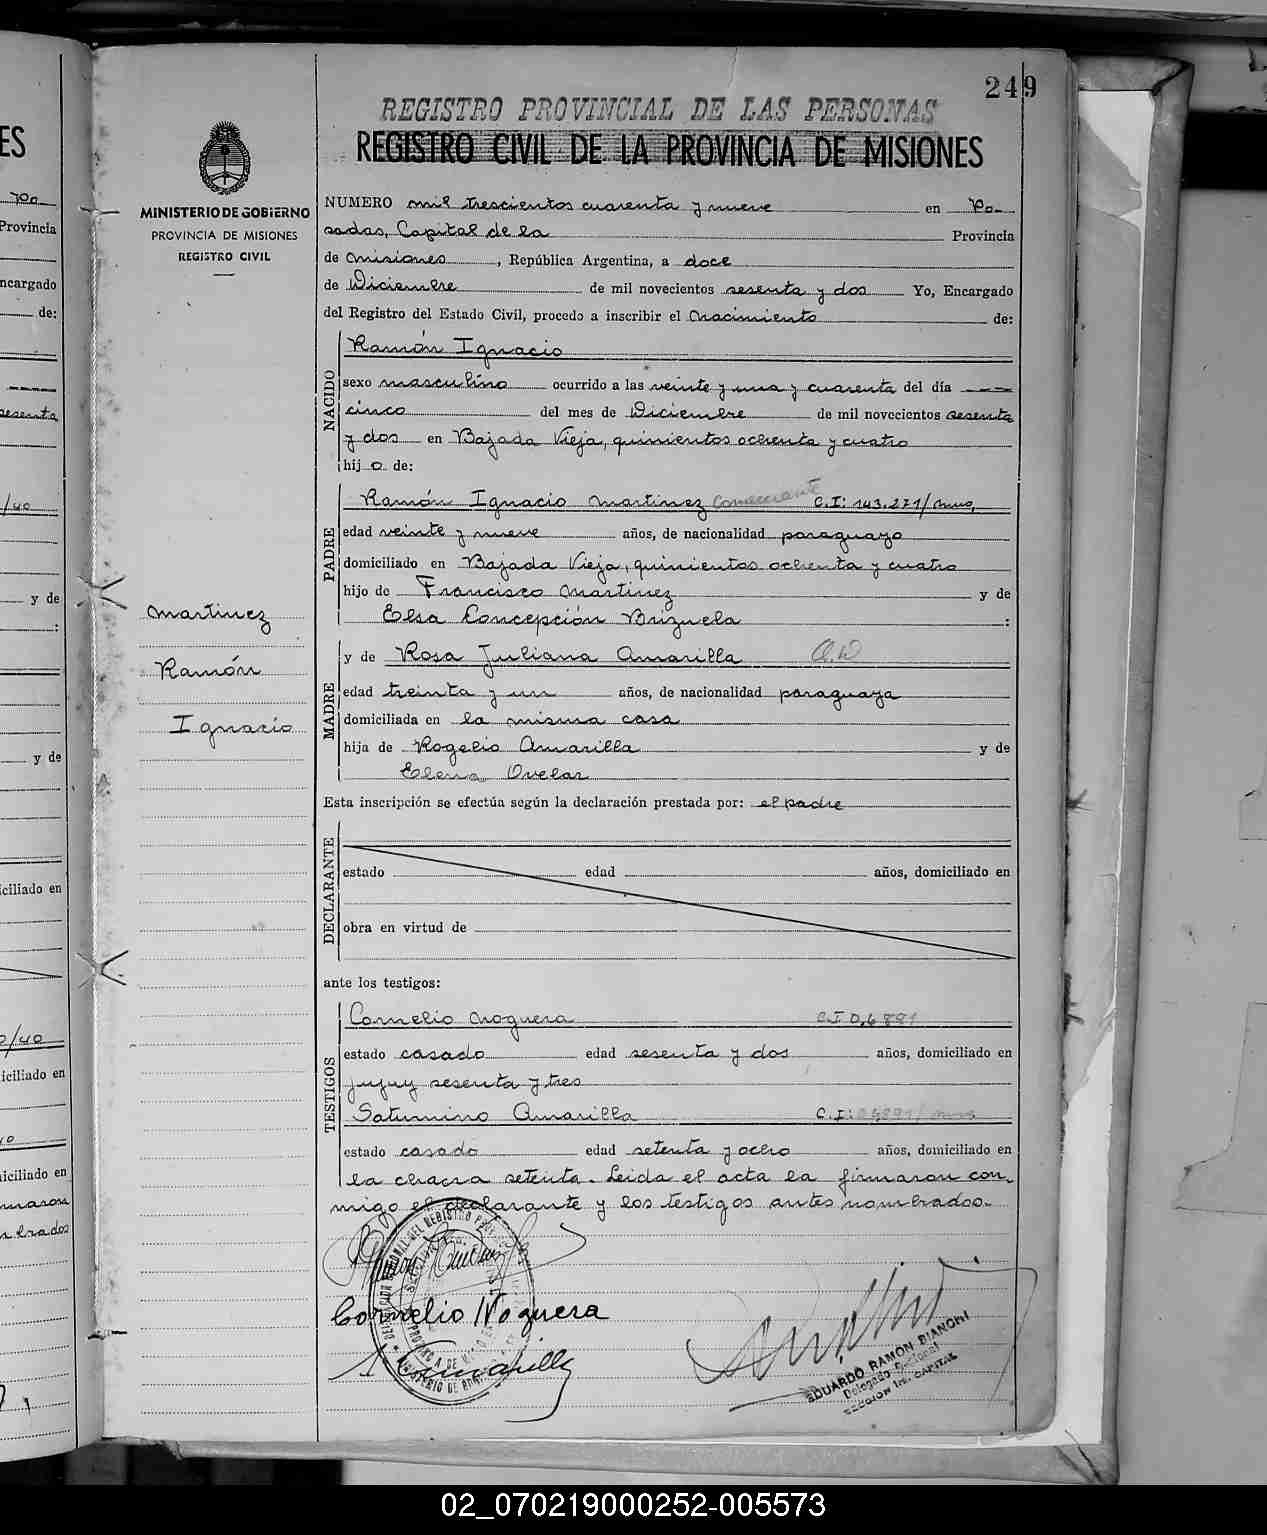 249
REGISTRO PROVINCIAL DE LAS PERSONAS
REGISTRO CIVIL DE LA PROVINCIA DE MISIONES
MINISTERIO DE GOBIERNO
PROVINCIA DE MISIONES
REGISTRO CIVIL
NUMERO mil trescientos cuarenta y nueve en Po-
sadas, Capital de la Provincia
de Misiones, República Argentina, a doce
de Diciembre de mil novecientos sesenta y dos Yo, Encargado
del Registro del Estado Civil, procedo a inscribir el Nacimiento de:
NACIDO
Ramón Ignacio
sexo masculino ocurrido a las veinte y una y cuarenta del día
cinco del mes de Diciembre de mil novecientos sesenta
y dos en Bajada Vieja, quinientos ochenta y cuatro
hijo de:
PADRE
Ramón Ignacio Martinez comerciante C.I: 143.271/mnes,
edad veinte y nueve años, de nacionalidad paraguayo
domiciliado en Bajada Vieja, quinientos ochenta y cuatro
hijo de Francisco Martinez y de
Elsa Concepción Brizuela :
Martinez
Ramón
Ignacio
MADRE
y de Rosa Juliana Amarilla Q.D
edad treinta y un años, de nacionalidad paraguaya
domiciliada en la misma casa
hija de Rogelio Amarilla y de
Elena Ovelar
Esta inscripción se efectúa según la declaración prestada por: el padre
DECLARANTE
estado edad años, domiciliado en
obra en virtud de
ante los testigos:
TESTIGOS
Cornelio Noguera C.I.
estado casado edad sesenta y dos años, domiciliado en
jujuy sesenta y tres
Saturnino Amarilla C.I:
estado casado edad setenta y ocho años, domiciliado en
la chacra setenta. Leida el acta la firmaron con-
migo el declarante y los testigos antes nombrados.-
Cornelio Noguera
Amarilla
EDUARDO RAMON BIANCHI
Delegado Regional
SECCION 1ra. CAPITAL
02_070219000252-005573